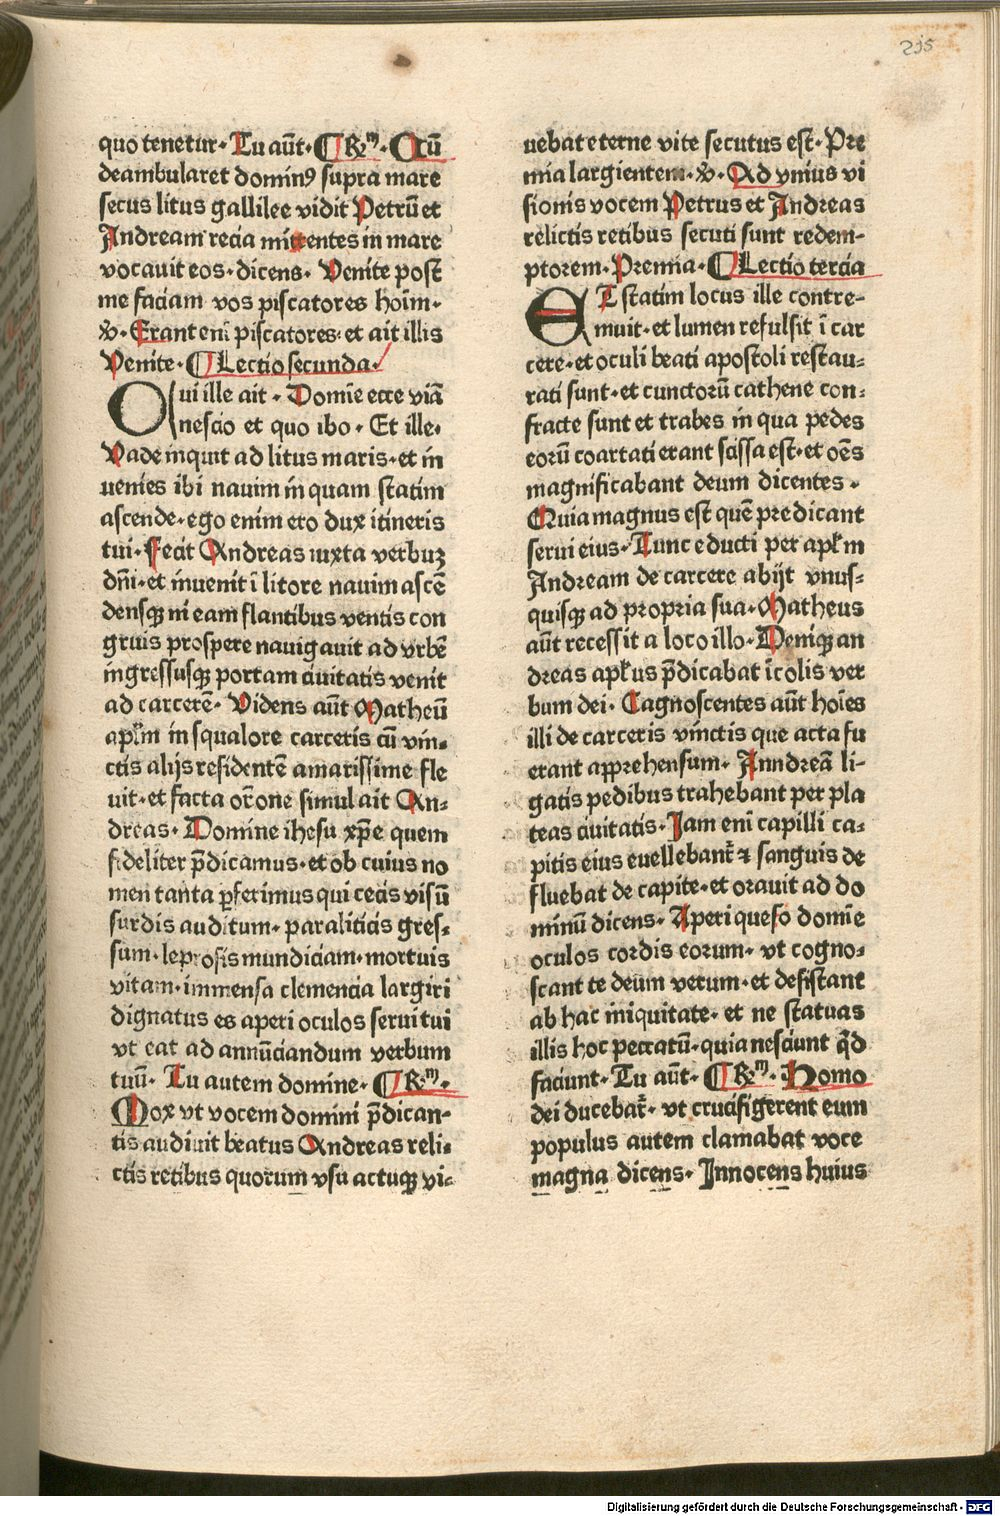 215
quo tenetur· Tu aūt· ¶ R̄m̄· Cū
deambularet dominꝰ supra mare
secus litus gallilee vidit Petrū et
Andream recia mittentes in mare
vocavit eos· dicens· Venite post
me faciam vos piscatores hoīm·
v̄· Erant enī piscatores· et ait illis
Venite· ¶ Lectio secunda·
Qui ille ait· Domīe ecce viā
nescio et quo ibo· Et ille·
Vade inquit ad litus maris· et in
uenies ibi nauim in quam statim
ascende· ego enim ero dux itineris
tui· Fecit Andreas iuxta verbuꝫ
dn̄i· et inuenit ī litore nauim ascē
densqꝫ ni eam flantibus ventis con
gruis prospere nauigauit ad vrbē
ingressusqꝫ portam ciuitatis venit
ad carcerē· Videns aūt Matheū
apl̄m in squalore carceris cū vin⸗
ctis alijs residentē amarissime fle
uit· et facta or̄one simul ait An⸗
dreas· Domine ihesu xp̄e quem
fideliter p̄dicamus· et ob cuius no
men tanta ꝑferimus qui cecis visū
surdis auditum· paraliticis gres⸗
sum· leprosis mundiciam· mortuis
vitam· immensa clemencia largiri
dignatus es aperi oculos serui tui
vt eat ad annūciandum verbum
tuū· Tu autem domine· ¶ R̄m̄·
Mox vt vocem domini p̄dican⸗
tis audiuit beatus Andreas reli⸗
ctis retibus quorum vsu actuqꝫ vi⸗
uebat eterne vite secutus est· Pre
mia largientem· v̄· Ad vnius vi
sionis vocem Petrus et Andreas
relictis retibus secuti sunt redem⸗
ptorem· Premia· ¶ Lectio tercia
ET statim locus ille contre⸗
muit· et lumen refulsit ī car
cere· et oculi beati apostoli restau⸗
rati sunt· et cunctorū cathene con⸗
fracte sunt et trabes in qua pedes
eorū coartati erant scissa est· et oēs
magnificabant deum dicentes·
Quia magnus est quē predicant
serui eius· Tunc educti per apl̄m
Andream de carcere abijt vnus⸗
quisqꝫ ad propria sua· Matheus
aūt recessit a loco illo· Deniqꝫ an
dreas apl̄us p̄dicabat īcolis ver
bum dei· Cagnoscentes aūt hoīes
illi de carceris vinctis que acta fu
erant apprehensum· Anndreā li⸗
gatis pedibus trahebant per pla
teas ciuitatis· Jam enī capilli ca⸗
pitis eius euellebant̄ ⁊ sanguis de
fluebat de capite· et orauit ad do
minū dicens· Aperi queso domīe
oculos cordis eorum· vt cogno⸗
scant te deum verum· et desistant
ab hac iniquitate· et ne statuas
illis hoc peccatū· quia nesciunt qd̄
faciunt· Tu aūt· ¶ R̄m̄· Homo
dei ducebat̄· vt crucifigerent eum
populus autem clamabat voce
magna dicens· Innocens huius
Digitalisierung gefördert durch die Deutsche Forschungsgemeinschaft - DFG